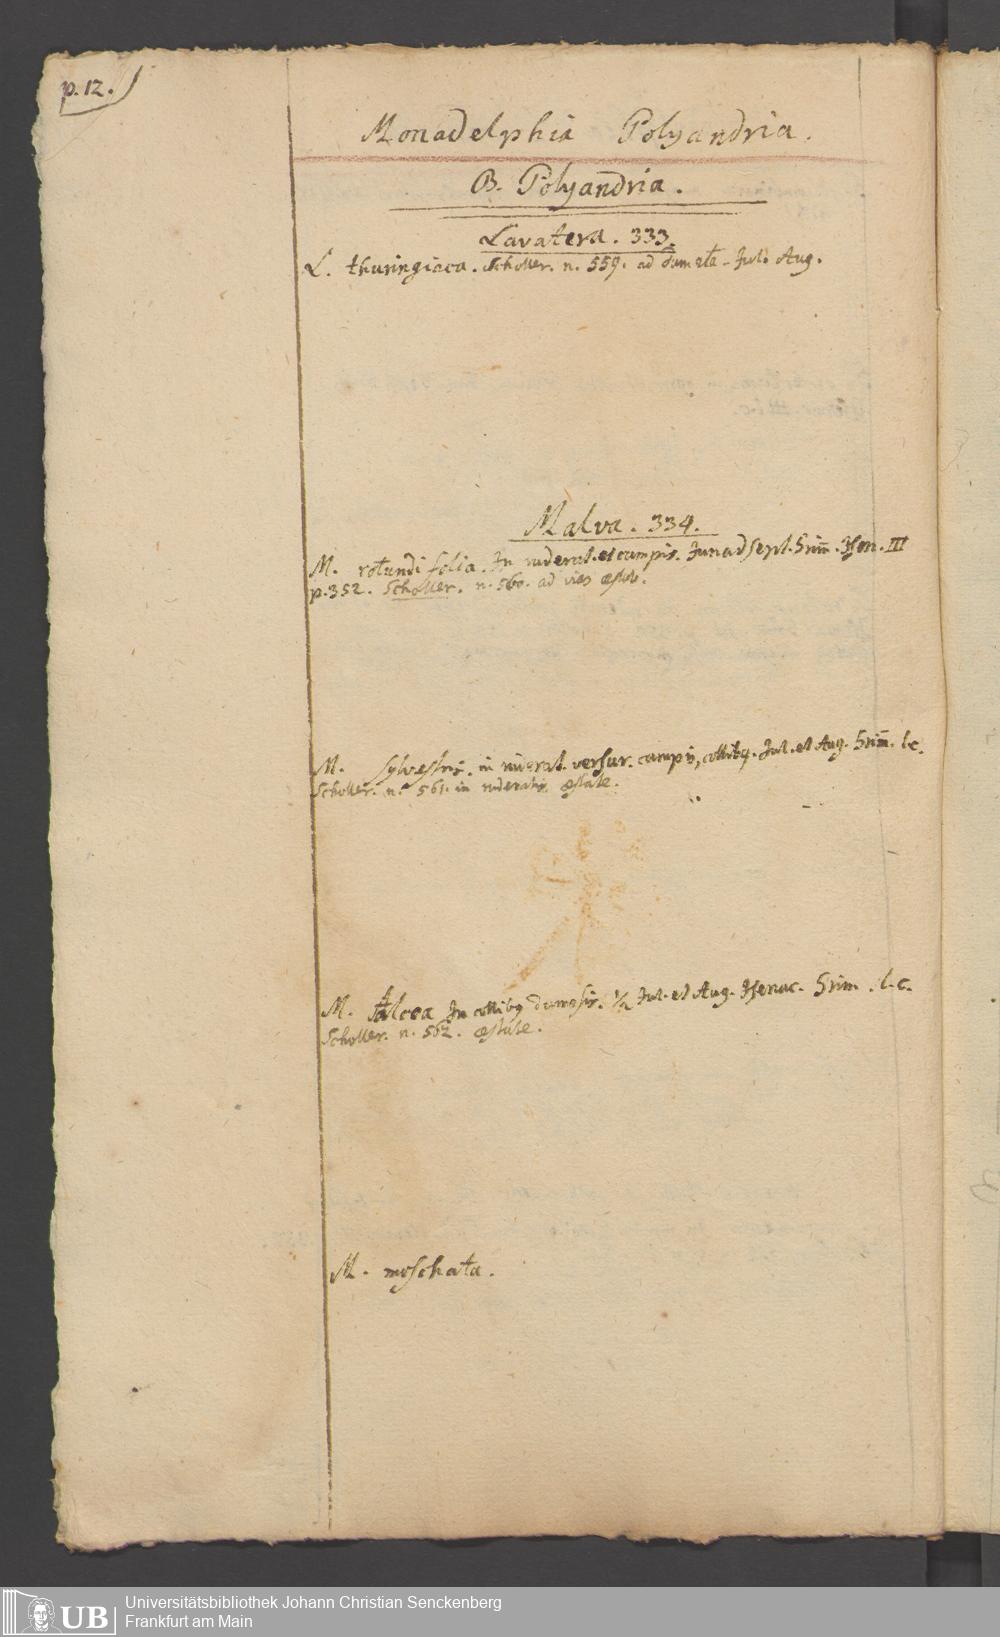 p. 12.
Monadelphia Polyandria.
B. Polyandria.
Lavatera. 333.
L. thuringiaca. Scholler. n. 559. ad dumeta - Jul. Aug.
Malva. 334.
M. rotundifolia. In ruderat. et campis. Jun ad Sept. Grim. Isen. III
p. 352. Scholler. n. 560. ad vias æstate.
M. sylvestris. in ruderat. versur. campis, collibq. Jul. et Aug. Grim. l.c.
Scholler. n. 561. in ruderatis æstate.
M. Alcea In collibq dumosis. ♃ Jul. et Aug. Isenac. Grim. l.c.
Scholler. n. 562. æstate.
M. moschata.
UB Universitätsbibliothek Johann Christian Senckenberg
Frankfurt am Main